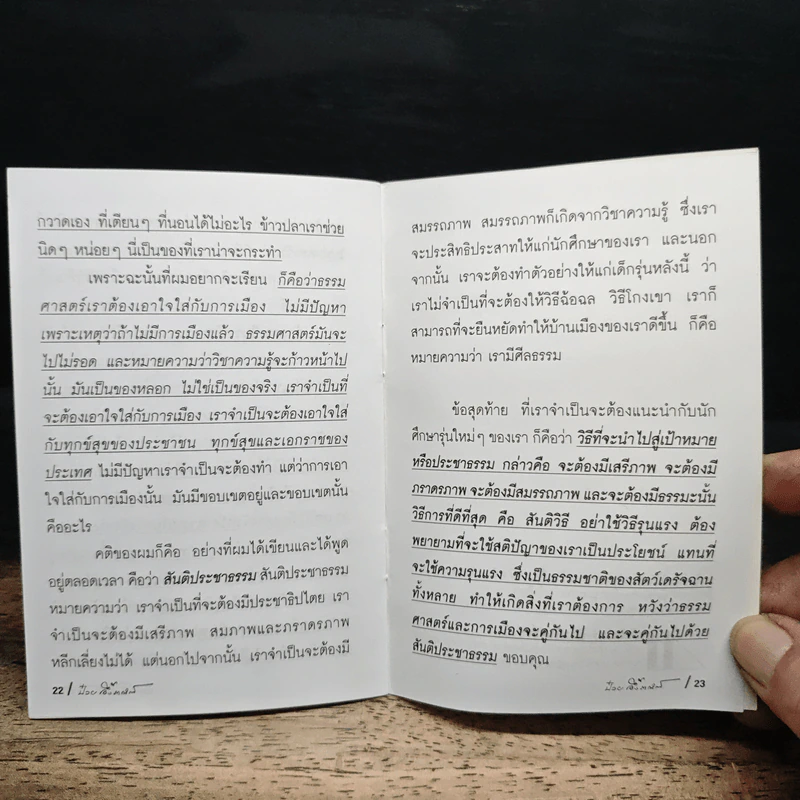 กวาดเอง ที่เตียนๆ ที่นอนได้ไม่อะไร ข้าวปลาเราช่วย
นิดๆ หน่อยๆ นี่เป็นของที่เราน่าจะกระทำ
เพราะฉะนั้นที่ผมอยากจะเรียน ก็คือว่าธรรม
ศาสตร์เราต้องเอาใจใส่กับการเมือง ไม่มีปัญหา
เพราะเหตุว่าถ้าไม่มีการเมืองแล้ว ธรรมศาสตร์มันจะ
ไปไม่รอด และหมายความว่าวิชาความรู้จะก้าวหน้าไป
นั้น มันเป็นของหลอก ไม่ใช่เป็นของจริง เราจำเป็นที่
จะต้องเอาใจใส่กับการเมือง เราจำเป็นจะต้องเอาใจใส่
กับทุกข์สุขของประชาชน ทุกข์สุขและเอกราชของ
ประเทศ ไม่มีปัญหาเราจำเป็นจะต้องทำ แต่ว่าการเอา
ใจใส่กับการเมืองนั้น มันมีขอบเขตอยู่และขอบเขตนั้น
คืออะไร
คติของผมก็คือ อย่างที่ผมได้เขียนและได้พูด
อยู่ตลอดเวลา คือว่า สันติประชาธรรม สันติประชาธรรม
หมายความว่า เราจำเป็นที่จะต้องมีประชาธิปไตย เรา
จำเป็นจะต้องมีเสรีภาพ สมภาพและภราดรภาพ
หลีกเลี่ยงไม่ได้ แต่นอกไปจากนั้น เราจำเป็นจะต้องมี
22 / ป๋วย อึ๊งภากรณ์
สมรรถภาพ สมรรถภาพก็เกิดจากวิชาความรู้ ซึ่งเรา
จะประสิทธิประสาทให้แก่นักศึกษาของเรา และนอก
จากนั้น เราจะต้องทำตัวอย่างให้แก่เด็กรุ่นหลังนี้ ว่า
เราไม่จำเป็นที่จะต้องให้วิธีฉ้อฉล วิธีโกงเขา เราก็
สามารถที่จะยืนหยัดทำให้บ้านเมืองของเราดีขึ้น ก็คือ
หมายความว่า เรามีศีลธรรม
ข้อสุดท้าย ที่เราจำเป็นจะต้องแนะนำกับนัก
ศึกษารุ่นใหม่ๆ ของเรา ก็คือว่า วิธีที่จะนำไปสู่เป้าหมาย
หรือประชาธรรม กล่าวคือ จะต้องมีเสรีภาพ จะต้องมี
ภราดรภาพ จะต้องมีสมรรถภาพ และจะต้องมีธรรมะนั้น
วิธีการที่ดีที่สุด คือ สันติวิธี อย่าใช้วิธีรุนแรง ต้อง
พยายามที่จะใช้สติปัญาของเราเป็นประโยชน์ แทนที่
จะใช้ความรุนแรง ซึ่งเป็นธรรมชาติของสัตว์เดรัจฉาน
ทั้งหลาย ทำให้เกิดสิ่งที่เราต้องการ หวังว่าธรรม
ศาสตร์และการเมืองจะคู่กันไป และจะคู่กันไปด้วย
สันติประชาธรรม ขอบคุณ
ป๋วย อึ๊งภากรณ์ / 23